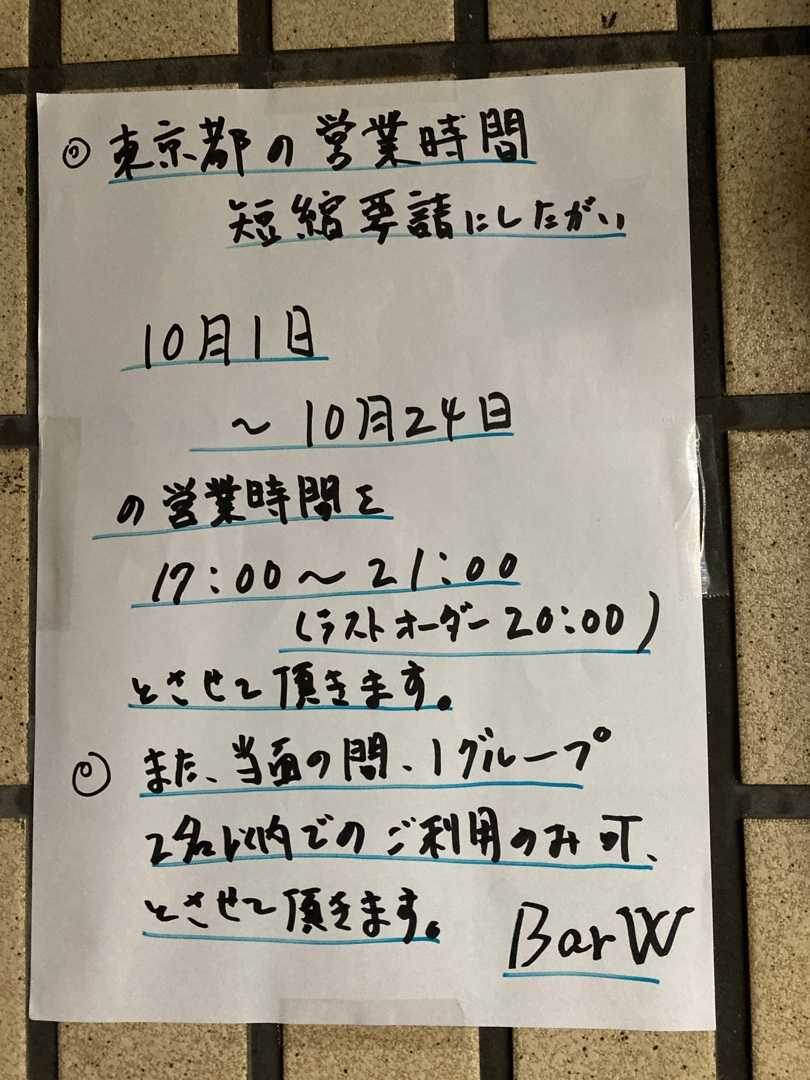 ◎ 東京都の営業時間
短縮要請にしたがい
10月1日
～10月24日
の営業時間を
17:00～21:00
(ラストオーダー20:00)
とさせて頂きます。
◎ また、当面の間、1グループ
2名以内でのご利用のみ可、
とさせて頂きます。
Bar W